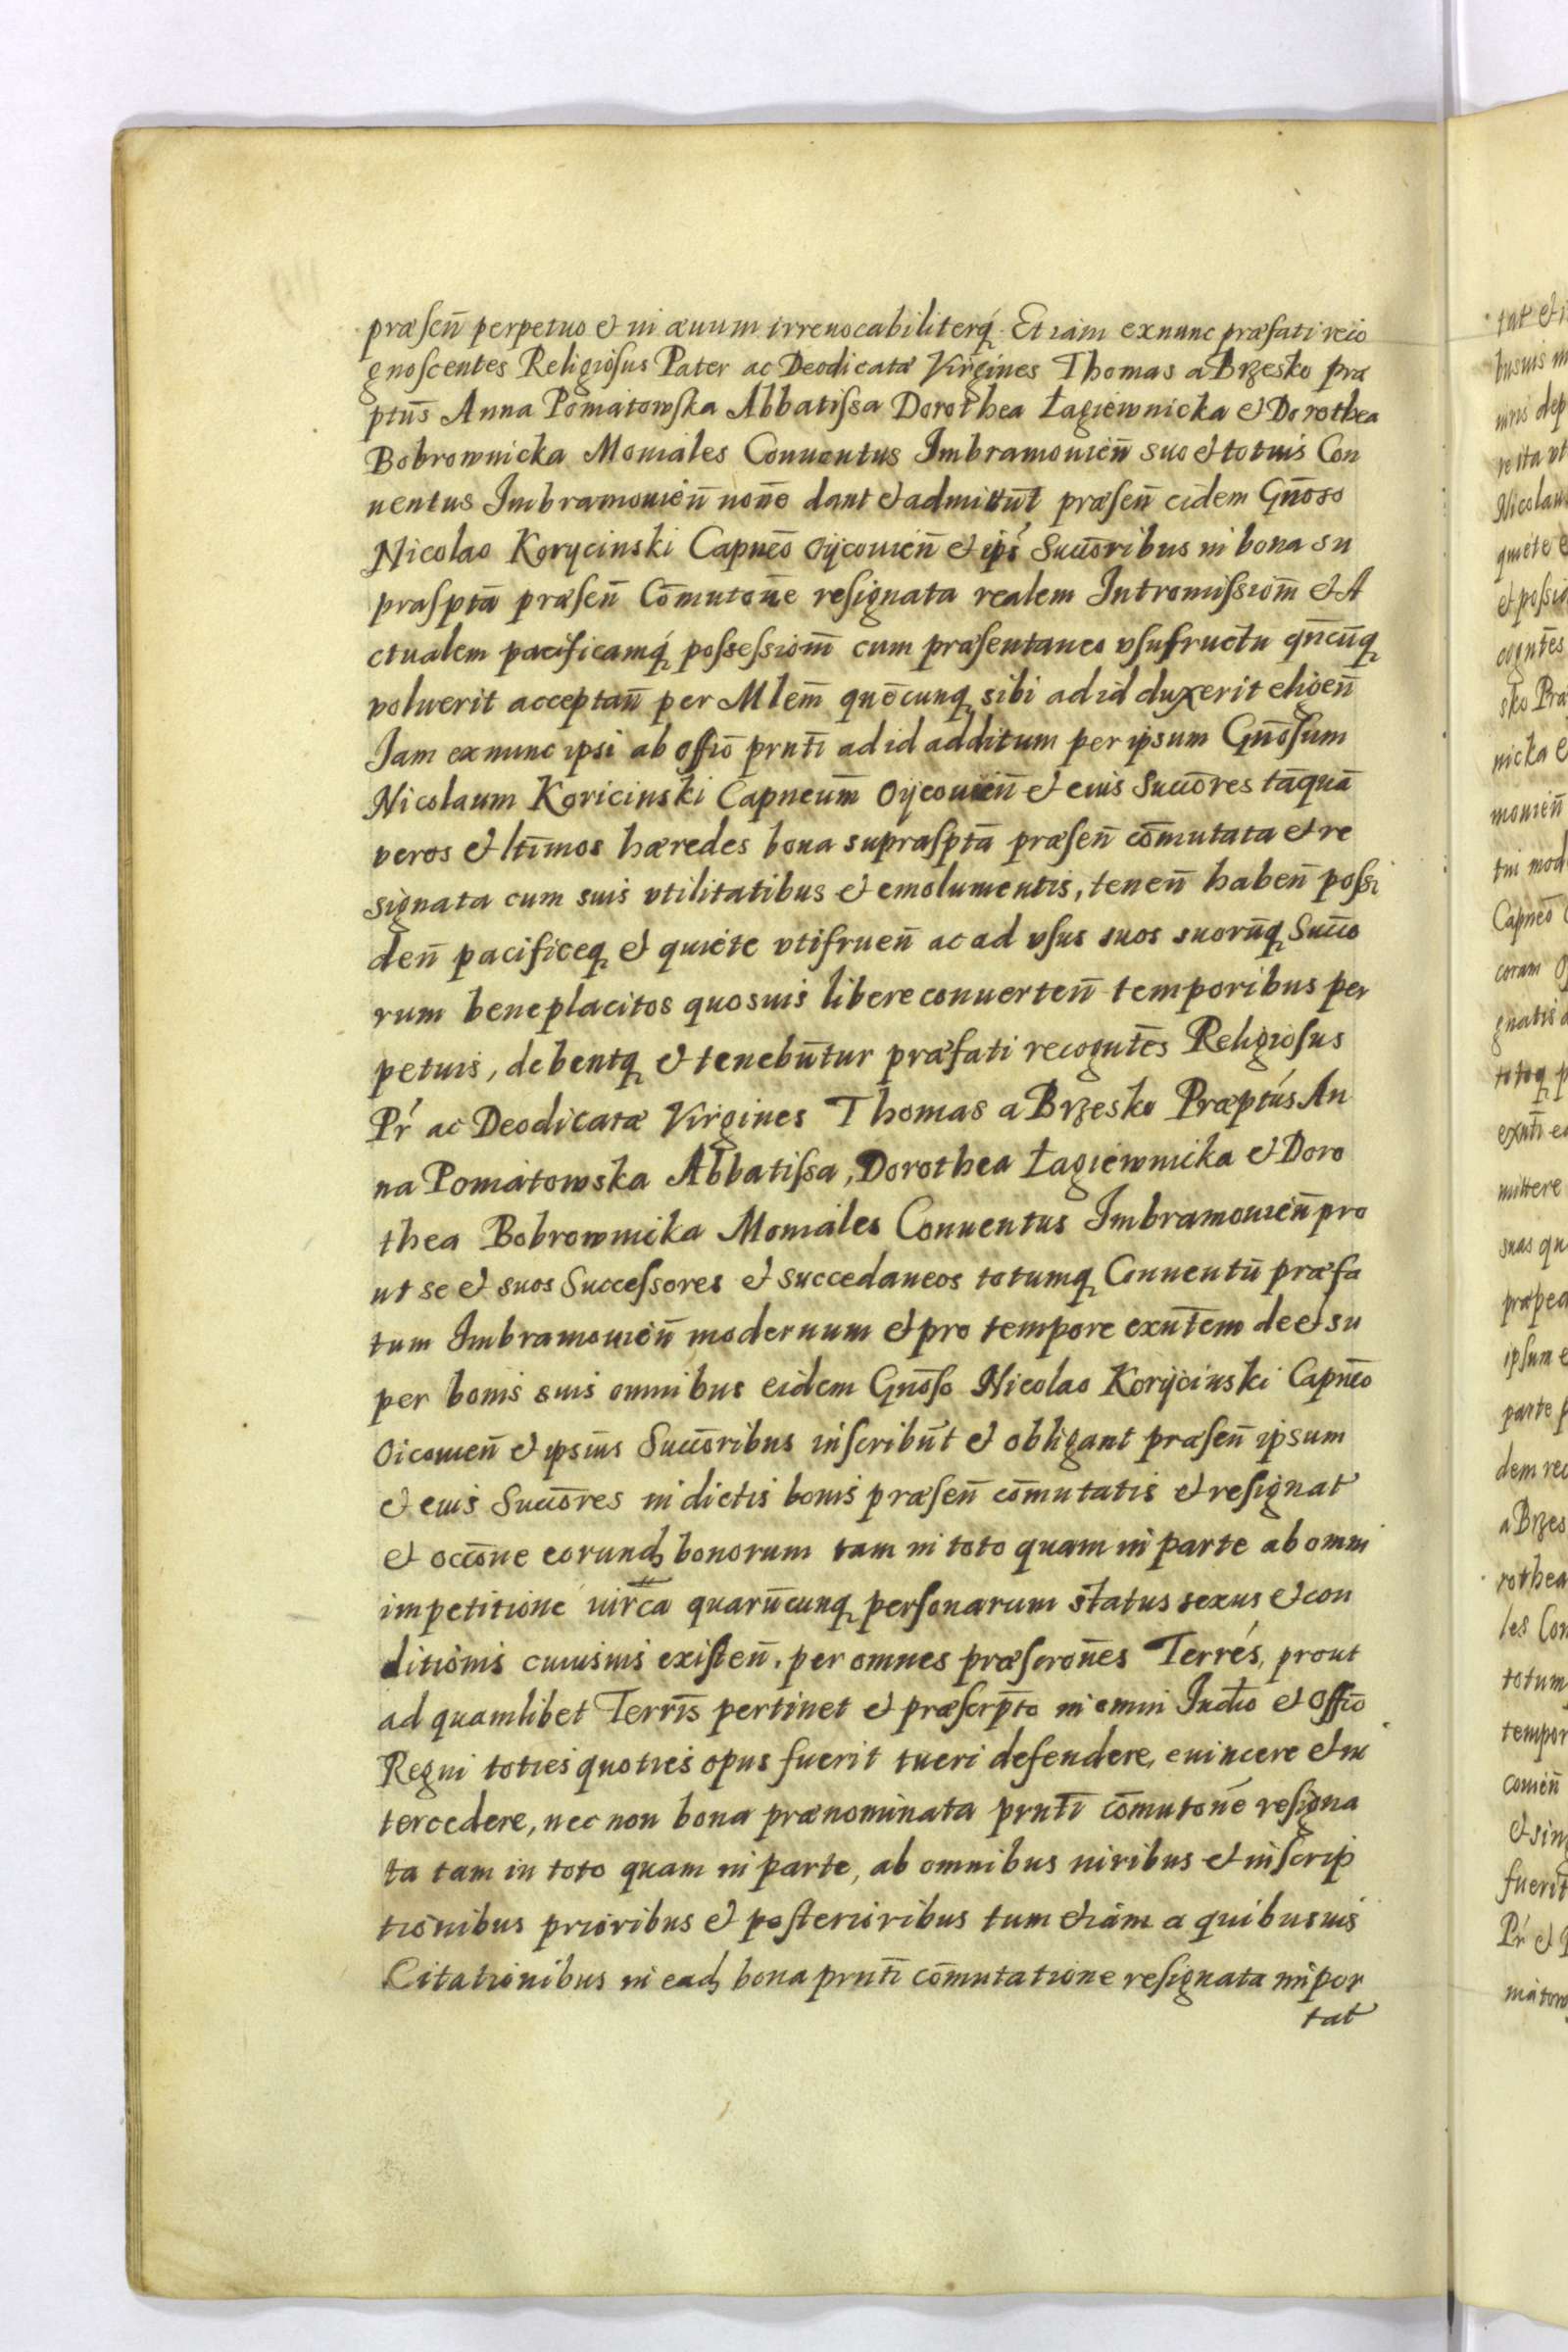 præsen̄ perpetuo et in æuum irreuocabiliterq́ꝫ. Et iam exnunc præfati reco
gnoscentes Religiosus Pater ac Deodicatæ Virgines Thomas a Brzesko præ
ptūs Anna Poniatowska Abbatissa Dorothea Łagiewnicka et Dorothea
Bobrownicka Moniales Conuentus Imbramouien̄ suo et totius Con
uentus Imbramouien̄ noīne dant et admittūt præsen̄ eidem Gn̄oso
Nicolao Korycinski Capneō Oÿcouien̄ et ips̄ Succōribus in bona su
praspta̅ præsen̄ Co̅mutōne resignata realem Intromissiom̅ et A
ctualem pacificamq́ꝫ possessiom̅ cum præsentaneo vsufructu qn̄cūqꝫ
voluerit acceptan̄ per Mlem̄ quēcunqꝫ sibi ad id duxerit eligen̄
Iam exnunc ipsi ab offiō prnti̅ ad id additum per ipsum Gnōsum
Nicolaum Koricinski Capneum̄ Oÿcouien̄ et eius Succōres ta̅qua̅
veros et ltīmos hæredes bona supraspta̅ præsen̄ co̅mutata et re
signata cum suis vtilitatibus et emolumentis, tenen̄ haben̄ possi
den̄ pacificeqꝫ et quiete vtifruen̄ ac ad vsus suos suorūqꝫ Succo
rum beneplacitos quosuis libere conuerten̄ temporibus per
petuis, debentqꝫ et tenebu̅tur præfati recogntēs Religiosus
Pŕ ac Deodicatæ Virgines Thomas a Brzesko Præptús An
na Poniatowska Abbatissa, Dorothea Łagiewnicka et Doro
thea Bobrownicka Moniales Conuentus Imbramouien̄ pro
ut se et suos Successores et succedaneos totumqꝫ Conuentū præfa
tum Imbramouien̄ modernum et pro tempore exnte̅m de et su
per bonis suis omnibus eidem Gnōso Nicolao Korÿcinski Capnēo
Oicouien̄ et ipsius Succōribus inscribūt et obligant præsen̄ ipsum
et eius Succōres in dictis bonis præsen̄ co̅mutatis et resignat
et occōne eorundꝫ bonorum tam in toto quam in parte ab omni
impetitione quarūcunqꝫ personarum status sexus et con
ditionis cuiusuis existen̄. per omnes præscrōnes Terrés, prout
ad quamlibet Terrīs pertinet et præscrp̄to in omni Iudīo et Offīo
Regni toties quoties opus fuerit tueri defendere, euincere et in
tercedere, nec non bona prænominata prnti̅ co̅mutōne resigna
ta tam in toto quam in parte, ab omnibus iuribus et inscrip
tionibus prioribus et posterioribus tum etiam a quibusuis
Citationibus in eadꝫ bona prnti̅ co̅mutatione resignata impor
tat